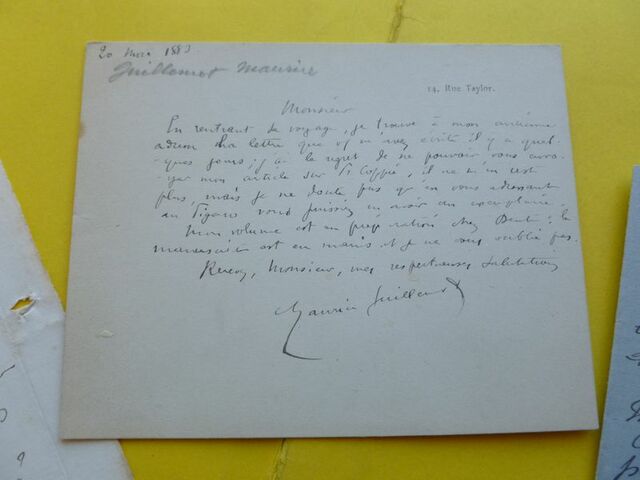 20 mai 1883
Guillemot Maurice
14, Rue Taylor.
Monsieur
En rentrant de voyage, je trouve à mon ancienne
adresse la lettre que vous m'avez écrite il y a quel-
ques jours; j'ai le regret de ne pouvoir vous envo-
yer mon article sur F. Coppée, il ne m'en reste
plus, mais je ne doute pas qu'en vous adressant
au Figaro vous puissiez en avoir un exemplaire.
Mon volume est en préparation chez : le
manuscrit est en mains et je ne vous oublie pas.
Recevez, Monsieur, mes respectueuses salutations
Maurice Guillemot